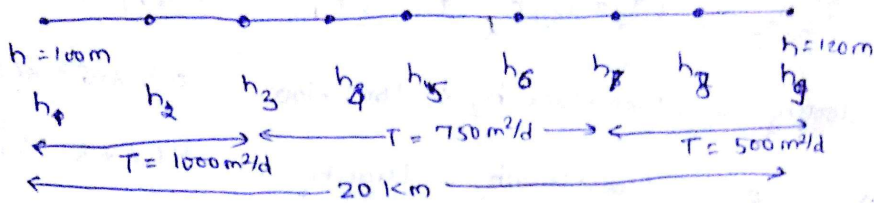 h = 100m h = 120m
h₁ h₂ h₃ h₄ h₅ h₆ h₇ h₈ h₉
T = 1000m²/d T = 750m²/d T = 500m²/d
20 km